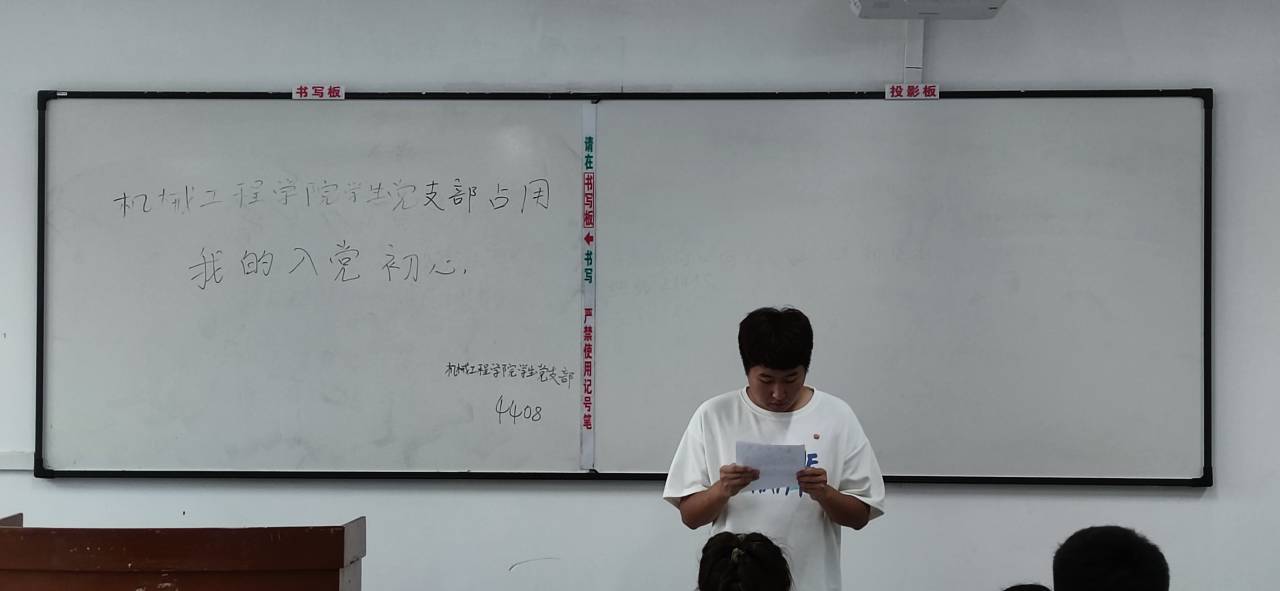 书写板
投影板
机械工程学院学生党支部占用
我的入党初心.
机械工程学院学生党支部
4408
请在书写板←书写 严禁使用记号笔